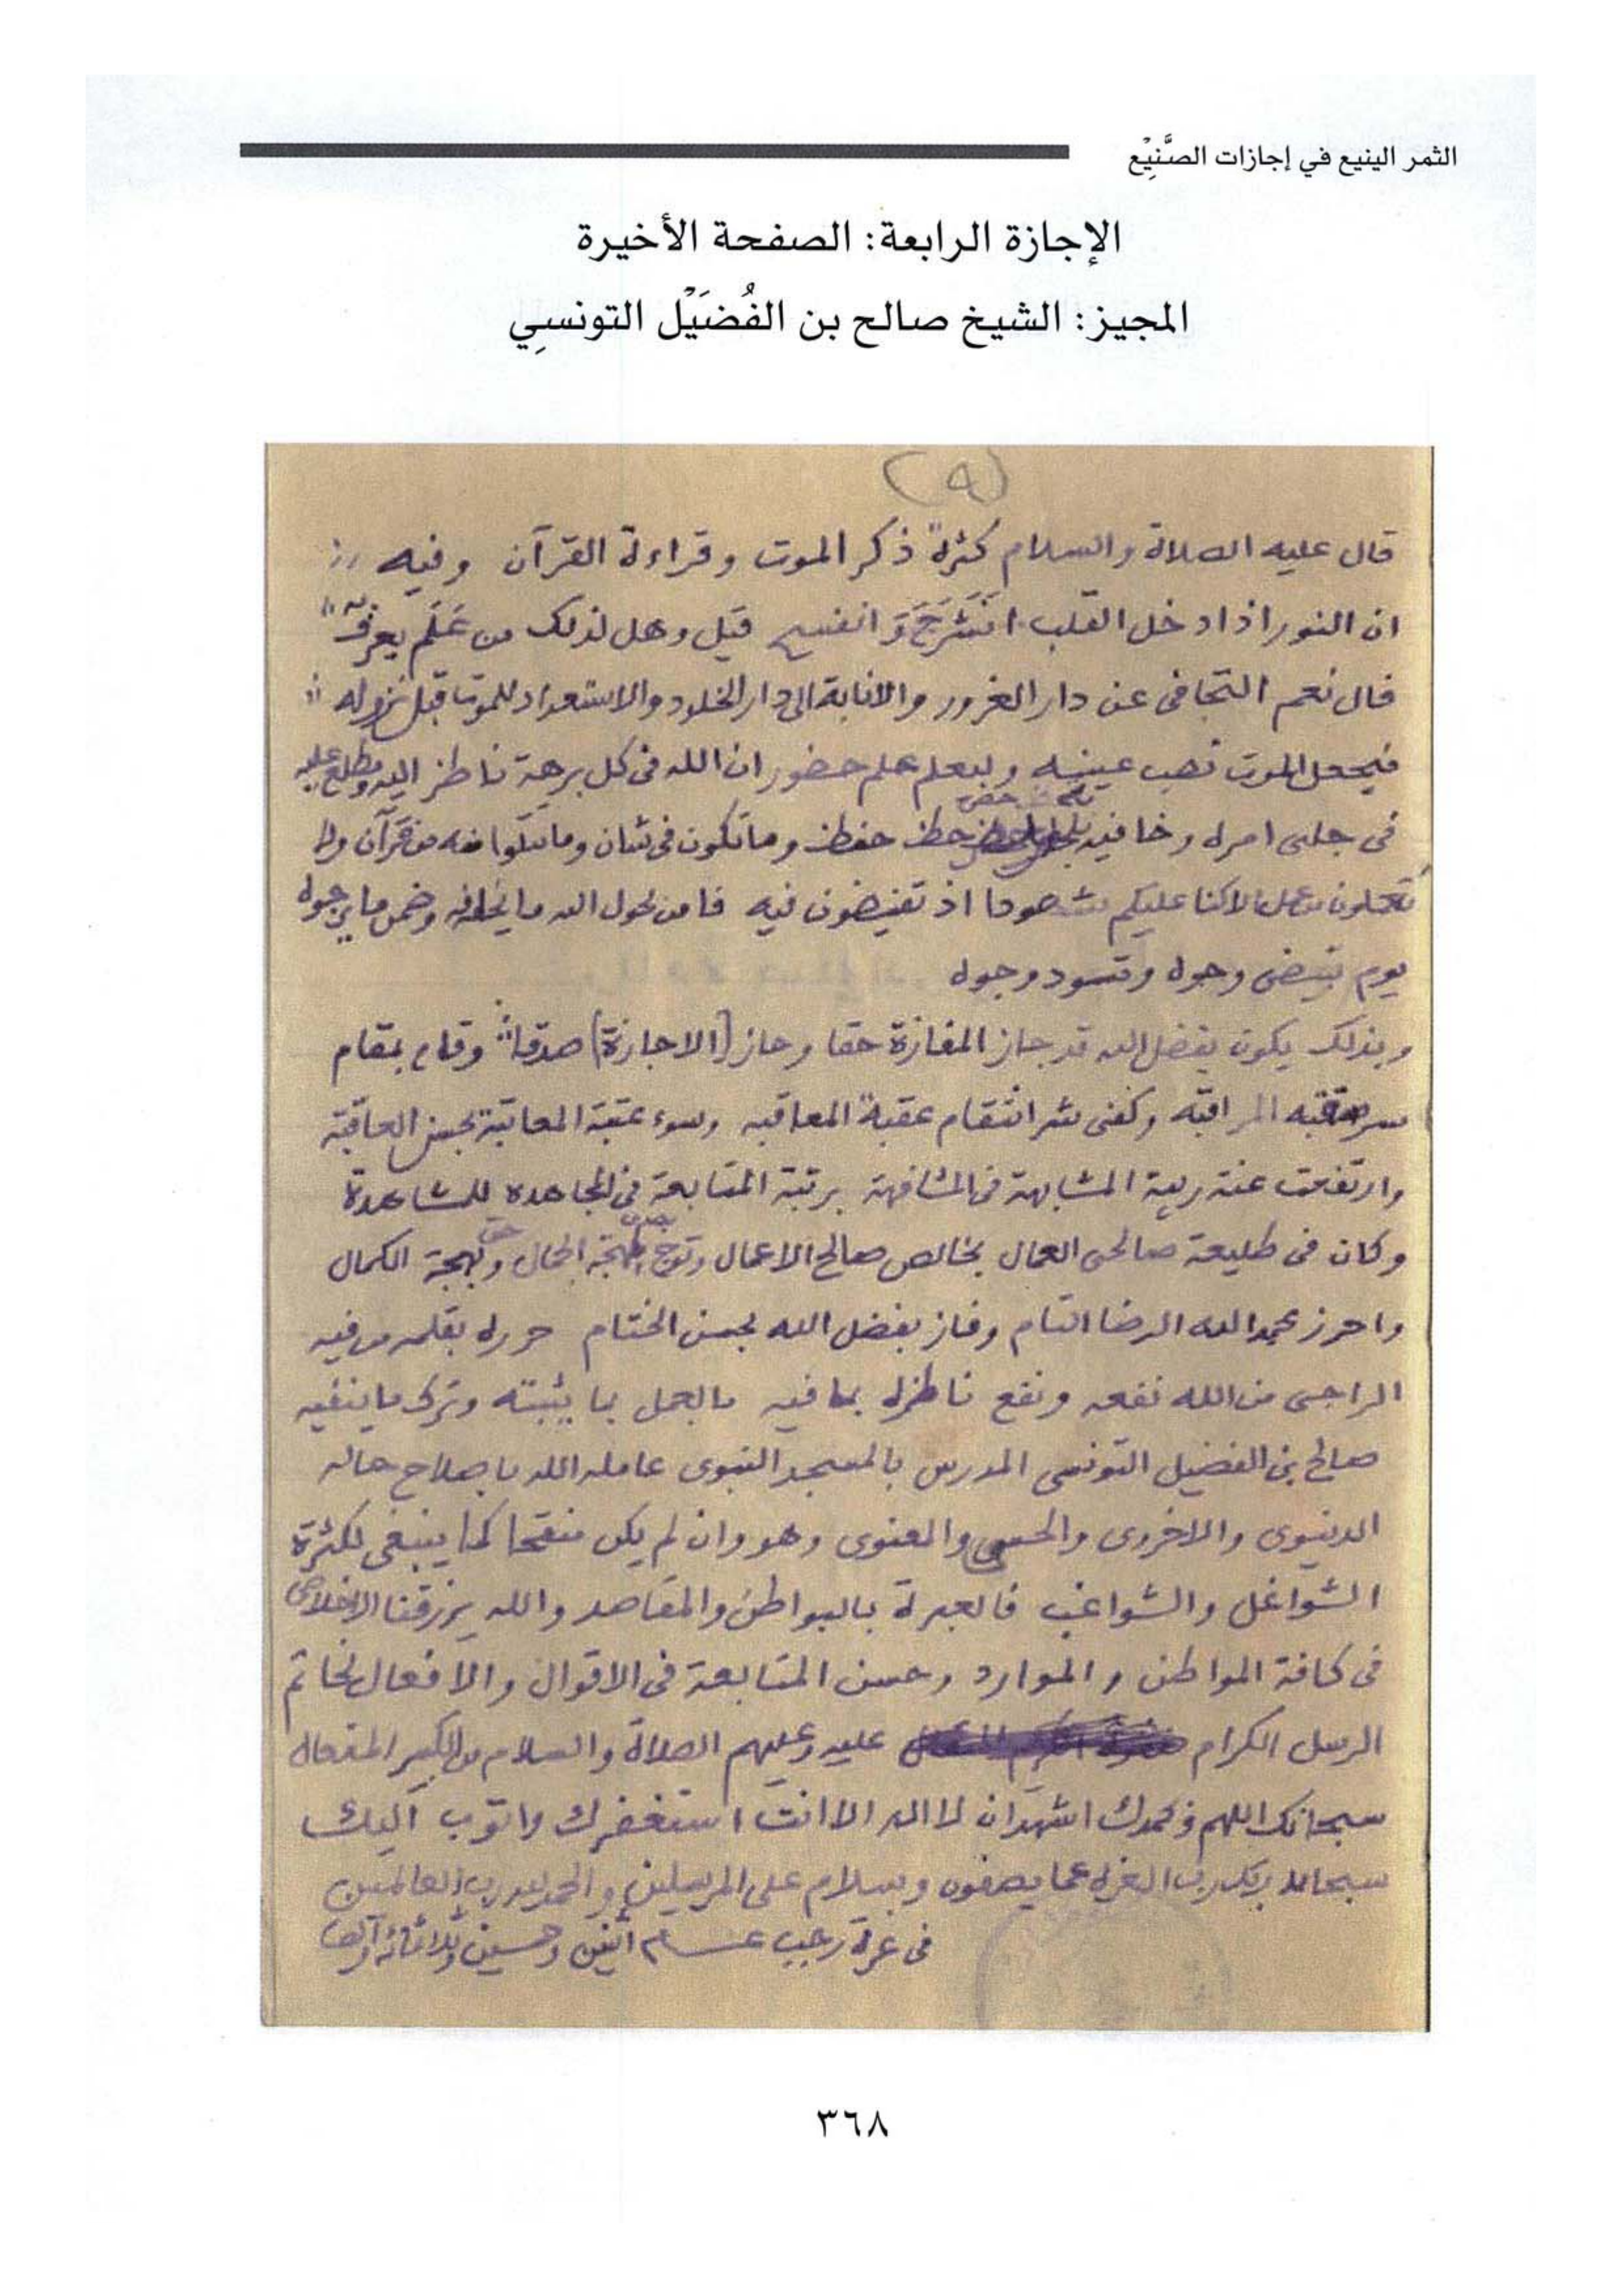 الثمر الينيع في إجازات الصَّنِيْع
الإجازة الرابعة: الصفحة الأخيرة
المجيز: الشيخ صالح بن الفُضَيْل التونسِي
(٩)
قال عليه الصلاة والسلام كثرة ذكر الموت وقراءة القرآن وفيه
ان النور اذا دخل القلب انشرح وانفسح قيل وهل لذلك من عَلَم يعرف به
قال نعم التجافى عن دار الغرور والانابة الى دار الخلود والاستعداد للموت قبل نزوله
فيجعل الموت نصب عينيه وليعلم علم حضور ان الله فى كل برهة ناظر اليه ومطلع عليه
فى جلى امره وخافيه حفظ وما تكون فى شان وما تتلوا منه من قرآن ولا
تعملون من عمل الا كنا عليكم شهودا اذ تفيضون فيه فامن بحول الله ما يخافه وضمن ما يرجوه
يوم تبيض وجوه وتسود وجوه
وبذلك يكون بفضل الله قد جاز المفازة حقا وحاز (الاجازة) صدقا وقام بمقام
المراقبه وكفى شر انتقام عقبة المعاقبه وسوء عتبة المعاتبة بحسن العاقبة
وارتفعت عنه ريبة المشابهة فى المشافهة برتبة المتابعة فى المجاهده للمشاهدة
وكان فى طليعة صالحى العمال بخالص صالح الاعمال وتوج الجمال وبهجة الكمال
واحرز بحمد الله الرضا التام وفاز بفضل الله بحسن الختام حرره بقلمه من فيه
الراجى من الله نفعه ونفع ناظره بما فيه بالعمل بما يثبته وترك ما ينفيه
صالح بن الفضيل التونسى المدرس بالمسجد النبوى عامله الله باصلاح حاله
الدنيوى والاخروى والحسى والمعنوى وهو وان لم يكن منقحا كما ينبغى لكثرة
الشواغل والشواغب فالعبرة بالبواطن والمقاصد والله يرزقنا الاخلاص
فى كافة المواطن والموارد وحسن المتابعة فى الاقوال والافعال لخاتم
الرسل الكرام عليه وعليهم الصلاة والسلام من الكبير المتعال
سبحانك اللهم وبحمدك اشهد ان لا اله الا انت استغفرك واتوب اليك
سبحان ربك رب العزه عما يصفون وسلام على المرسلين والحمد لله رب العالمين
فى غرة رجب عام اثنين وخمسين وثلاثمائة والف
٣٦٨